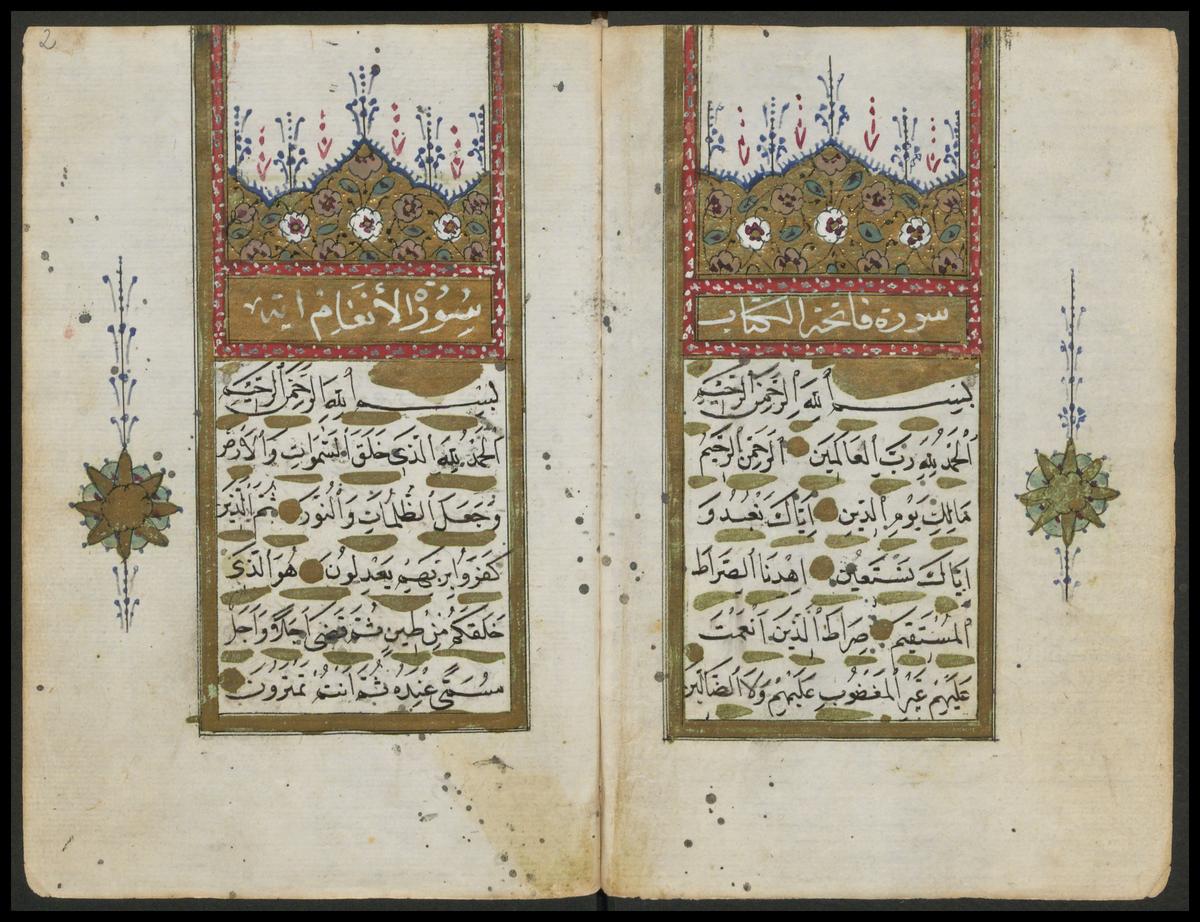 سورة فاتحة الكتاب
بِسْمِ اللهِ الرَّحْمٰنِ الرَّحِيْمِ
اَلْحَمْدُ لِلّٰهِ رَبِّ الْعَالَمِيْنَ اَلرَّحْمٰنِ الرَّحِيْمِ
مَالِكِ يَوْمِ الدِّيْنِ اِيَّاكَ نَعْبُدُ وَ
اِيَّاكَ نَسْتَعِيْنُ اِهْدِنَا الصِّرَاطَ
الْمُسْتَقِيْمَ صِرَاطَ الَّذِيْنَ اَنْعَمْتَ
عَلَيْهِمْ غَيْرِ الْمَغْضُوْبِ عَلَيْهِمْ وَلَا الضَّالِّيْنَ
2
سُوْرَةُ الْأَنْعَامِ اية
بِسْمِ اللهِ الرَّحْمٰنِ الرَّحِيْمِ
اَلْحَمْدُ لِلّٰهِ الَّذِىْ خَلَقَ السَّمٰوَاتِ وَالْاَرْضَ
وَجَعَلَ الظُّلُمَاتِ وَالنُّوْرَ ثُمَّ الَّذِيْنَ
كَفَرُوْا بِرَبِّهِمْ يَعْدِلُوْنَ هُوَ الَّذِىْ
خَلَقَكُمْ مِنْ طِيْنٍ ثُمَّ قَضٰى اَجَلًا وَاَجَلٌ
مُسَمًّى عِنْدَهُ ثُمَّ اَنْتُمْ تَمْتَرُوْنَ